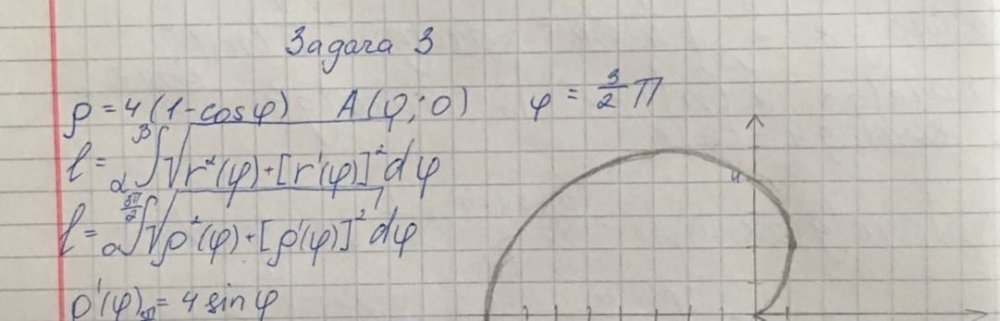 Задача 3
ρ = 4 (1 - cos φ) A (0; 0) φ = 3/2 π
l = α∫β √r²(φ) + [r'(φ)]² dφ
l = 0∫3π/2 √ρ²(φ) + [ρ'(φ)]² dφ
ρ'(φ) = 4 sin φ
4